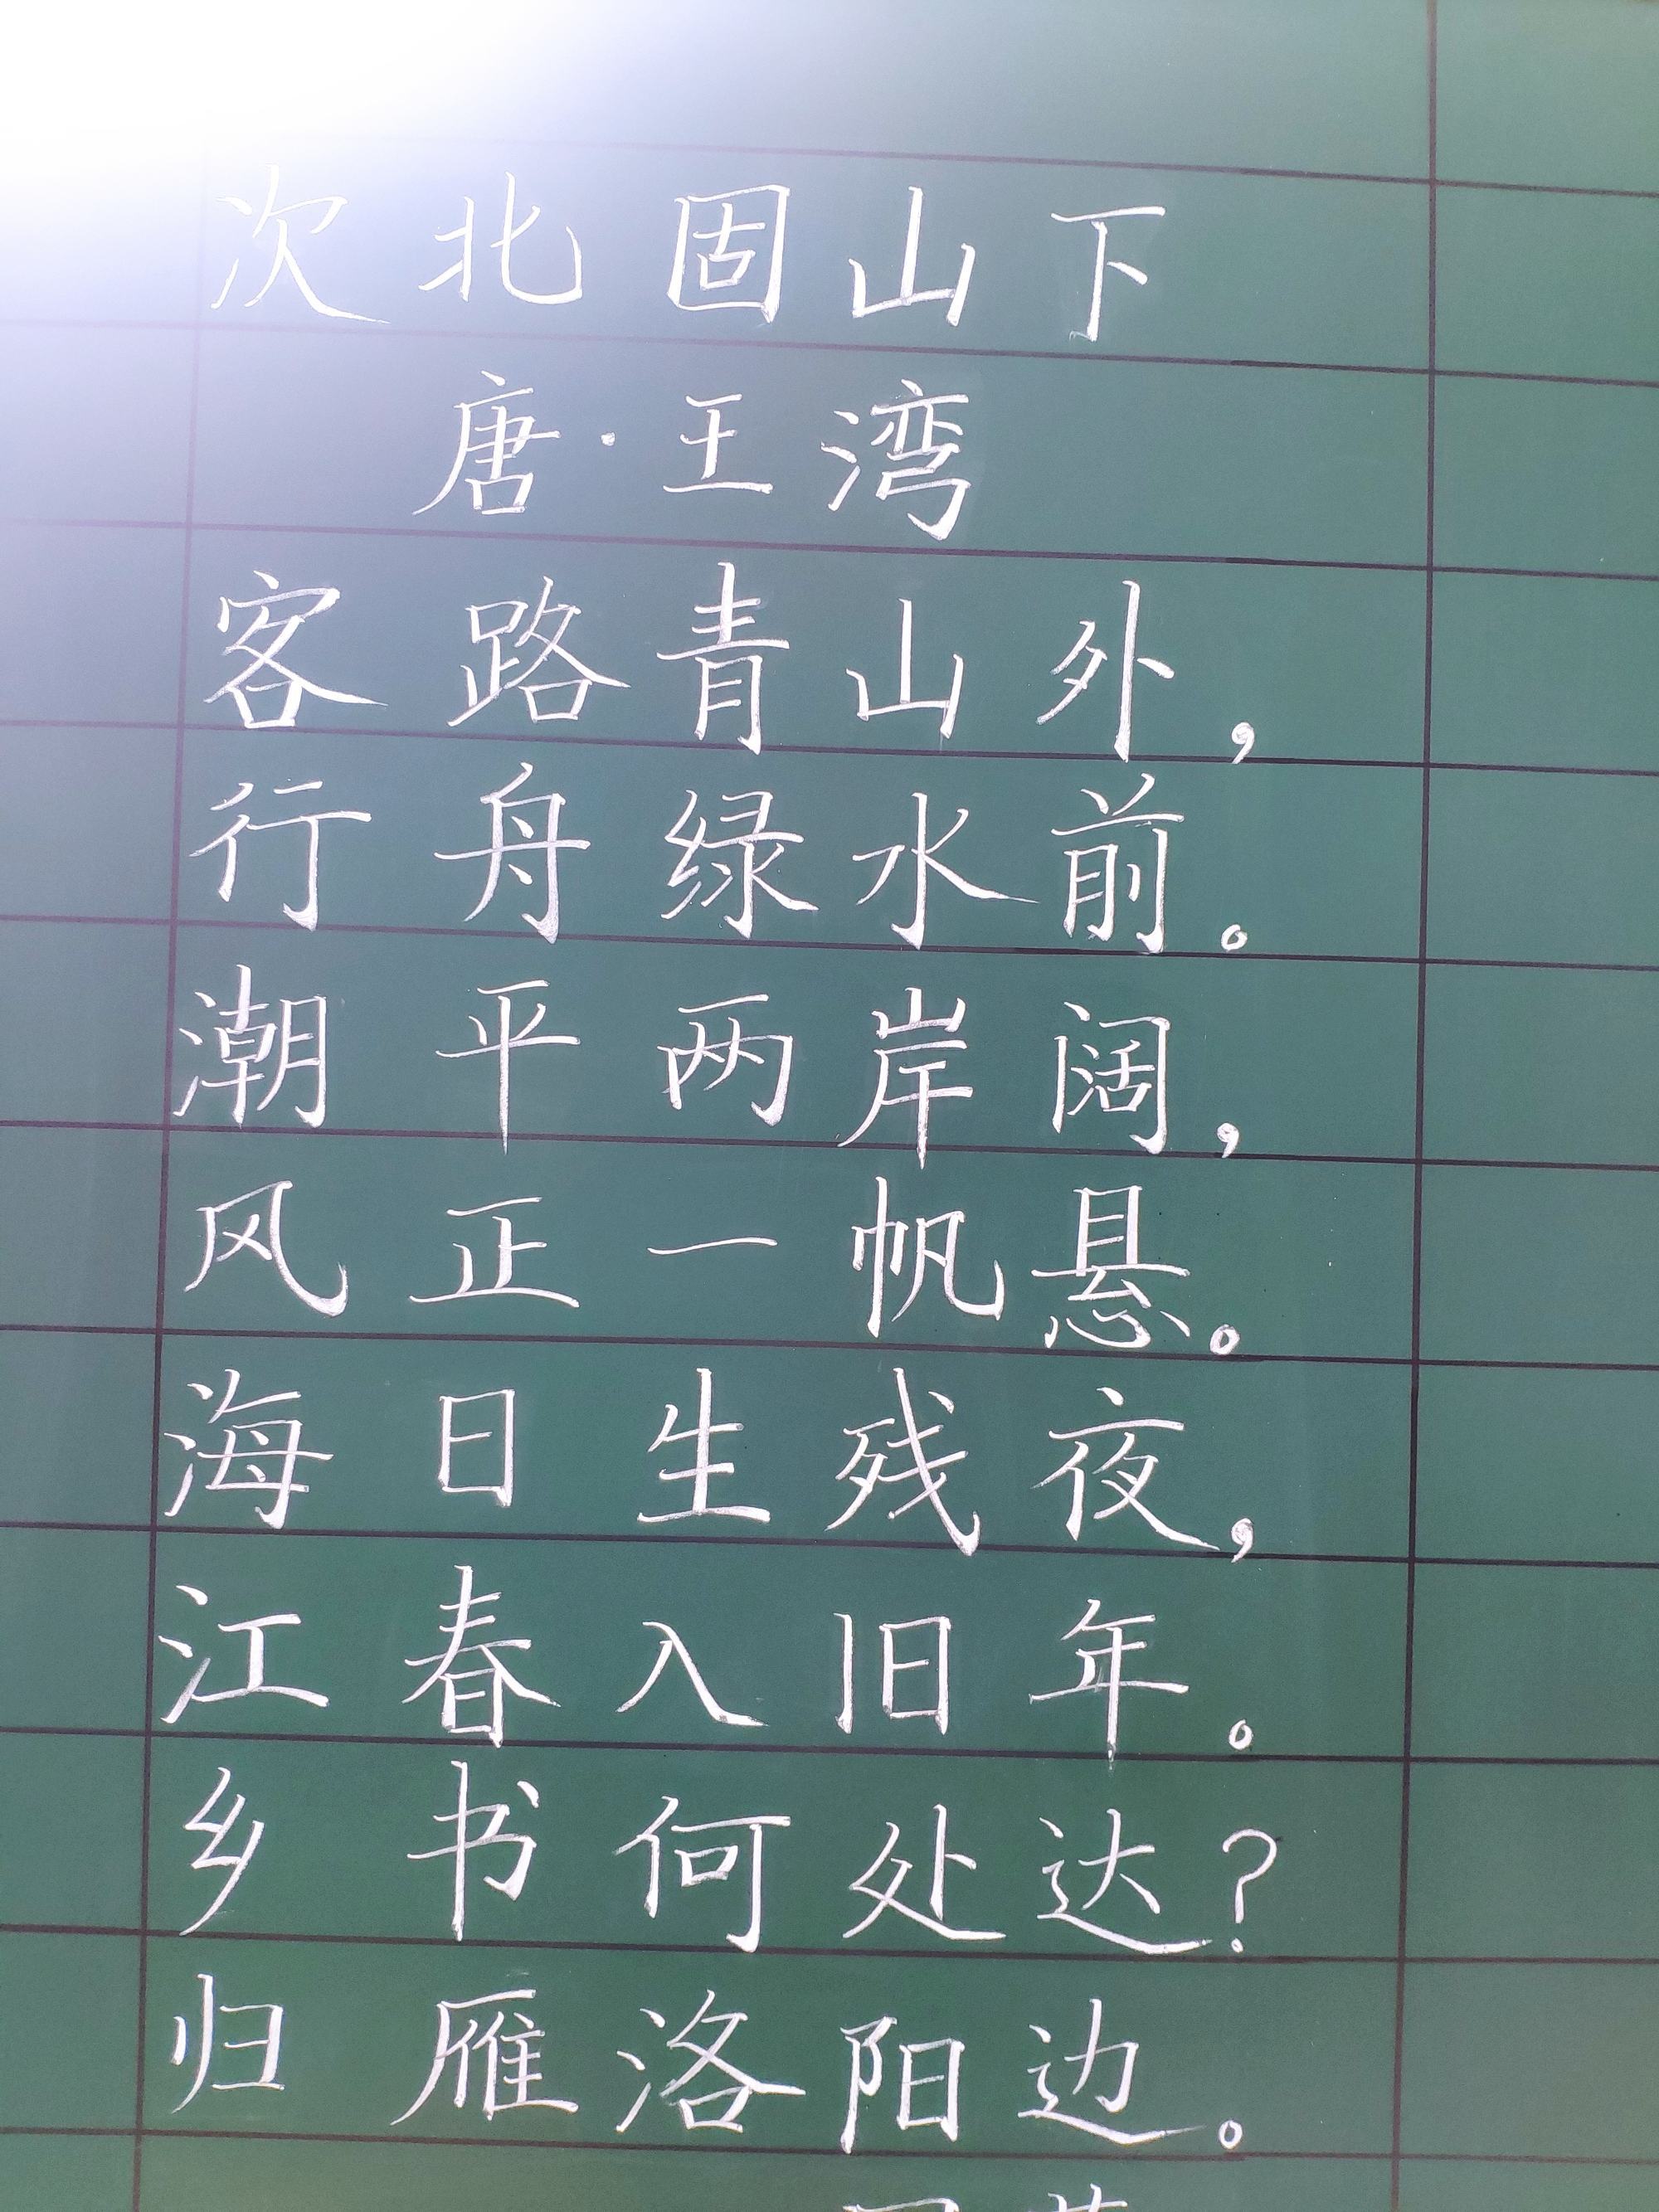 次北固山下
唐·王湾
客路青山外，
行舟绿水前。
潮平两岸阔，
风正一帆悬。
海日生残夜，
江春入旧年。
乡书何处达？
归雁洛阳边。